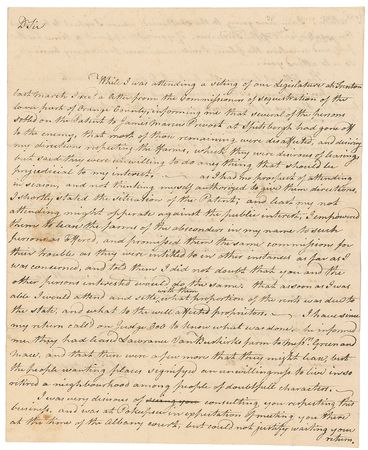 D Sir
While I was attending a sitting of our Legislature at Trenton
last March I rec.d a letter from the Commissioners of Sequestration of the
lower part of Orange County, informing me that several of the persons
settled on the Patent to James Marcus Prevost at had gone off
to the enemy, that most of those remaining, were disaffected, and desiring
my directions respecting the Farms, which they were desirous of leasing,
but said they were unwilling to do any thing that should be
prejudicial to my interest, as I had no prospect of attending
in season, and not thinking myself authorized to give them directions,
I shortly stated the situation of the Patent, and least my not
attending might opperate against the public interest, I empowered
them to lease the farms of the absconders in my name to such
persons as offered, and promised them the same commissions for
their trouble as they were intitled to in other instances as far as I
was concerned, and told them I did not doubt that you and the
other persons interested would do the same. that as soon as I was
able I would attend and settle with them what proportion of the rents was due to
the State, and what to the well affected proprietors. I have since
my return called on Judge to know what was done. he informed
me they had leased Lawrance VanBuskirks farm to Mess.rs Green and
and that there were a few more that they might lease, but
the people wanting places signifyed an unwillingness to live in so
retired a neighbourhood among people of doubtfull characters.
I was very desirous of consulting you respecting this
business, and was at in expectation of meeting you there
at the time of the Albany court, but could not justify waiting your
return,